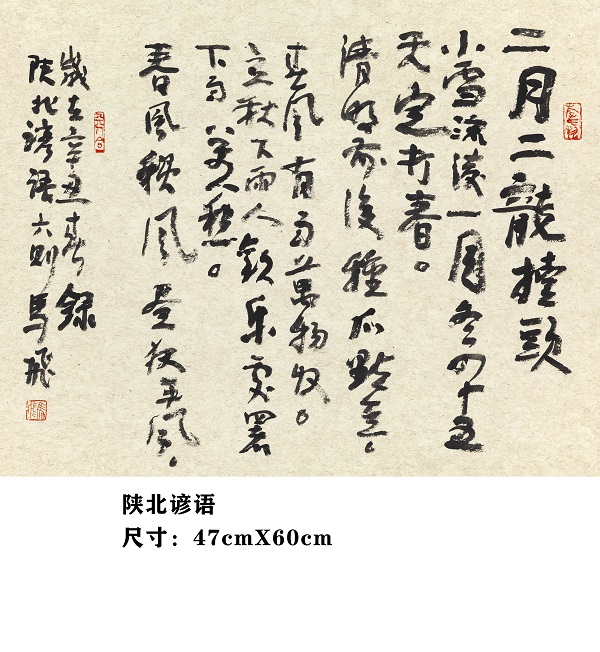 二月二龍擡頭
小雪流凌一月冬四十五
天定打春。
清明前後種瓜點豆。
春風有雨萬物收。
立秋下雨人歡樂處暑
下雨萬人愁。
春風風是風。
歲在辛丑春錄
陝北諺語六則馬飛
陕北谚语
尺寸：47cmX60cm